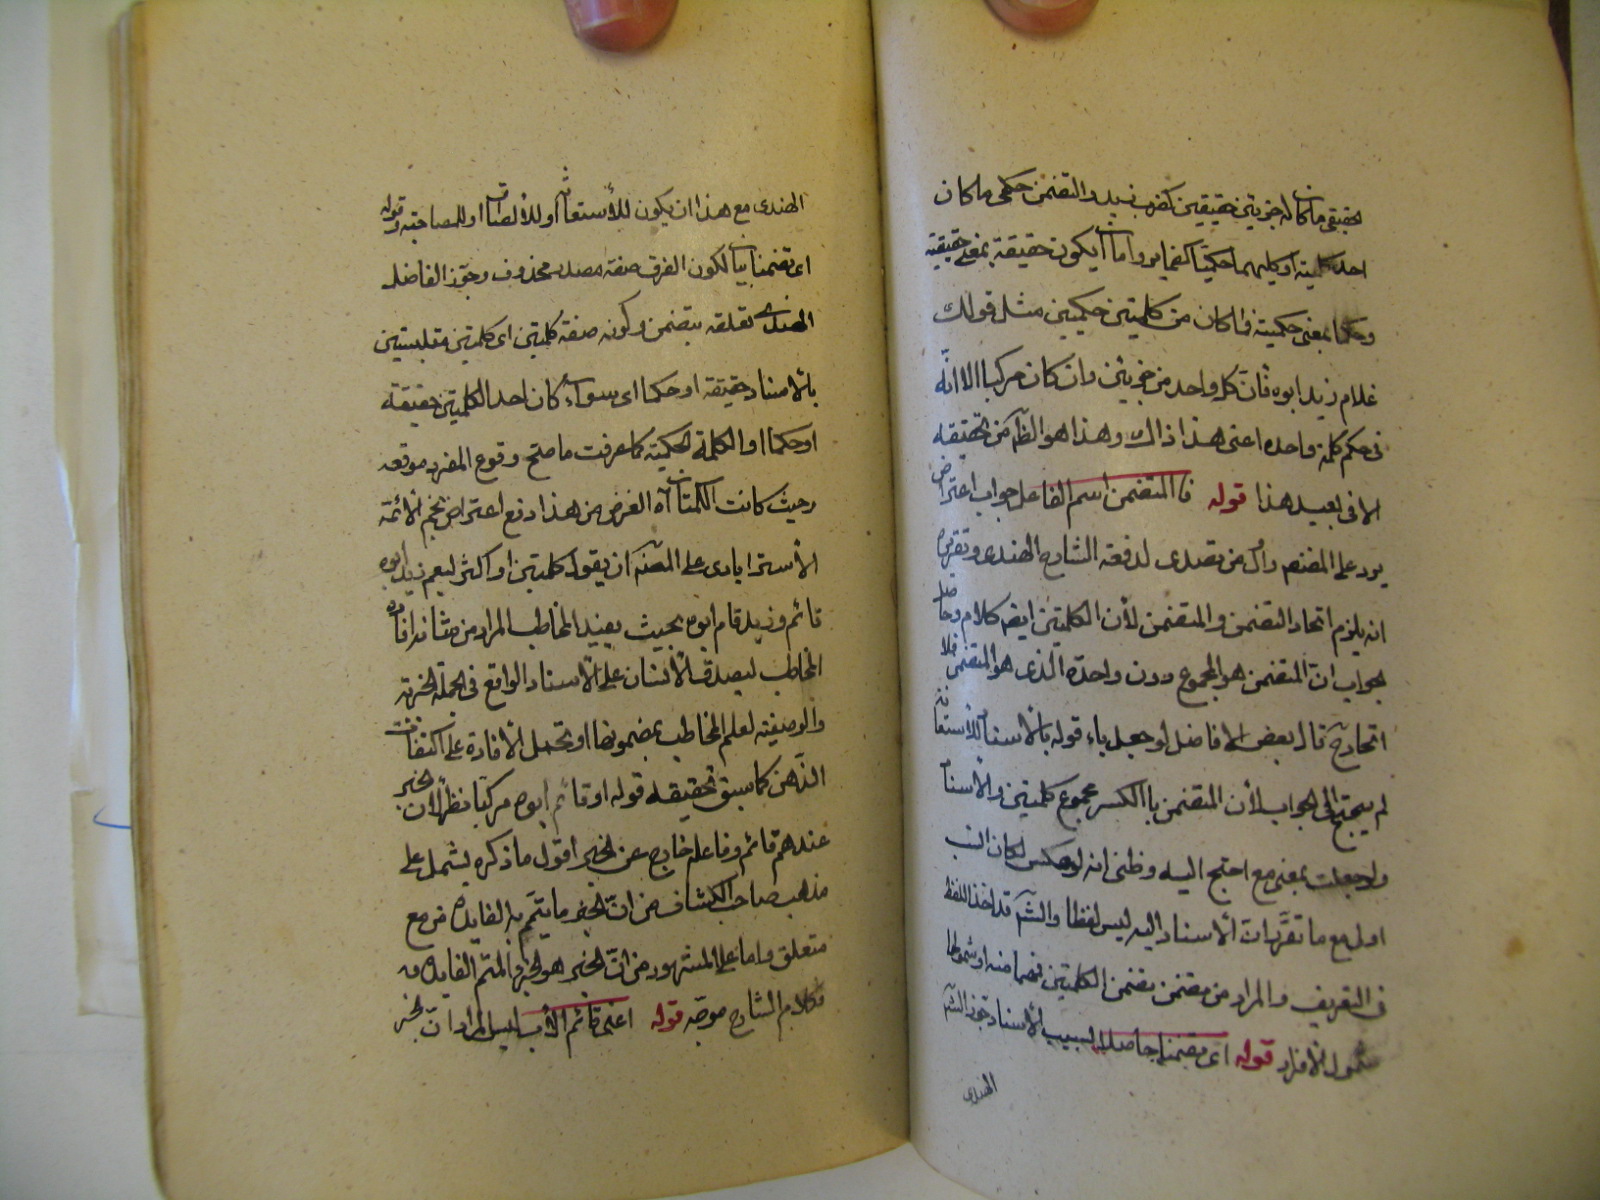 الحقيقي ما كان له جزئيتين حقيقيتين كضرب زيد والتضمن حكمي ما كان
احد كلميته او كليهما حكميتا كما يرد واما ان يكون حقيقة بمعنى حقيقية
وحكما بمعنى حكمية فما كان من كلمتين حكميتين مثل قولك
غلام زيد ابوه فان كل واحد من جزئيتين وان كان مركبا الا انه
في حكم كلمة واحدة اعنى هذا ذاك وهذا هو الظاهر من تحقيقه
الاتى بعيد هذا قوله فالمتضمن اسم الفاعل جواب اعتراض
يرد على المصنف واول من تصدى لدفعه الشارح الهندى وتقريره
انه يلزم اتحاد المتضمن والمتضمن لأن الكلمتين ايضه كلام وحاصل
الجواب ان المتضمن هو المجموع دون واحدة الذى هو المتضمن فلا
اتحاد ح قال بعض الافاضل لو جعل باء قوله بالاسناد للأستعانة
لم يحتج الى الجواب لأن المتضمن باالكسر مجموع كلمتين والأسناد
ولو جعلت بمعنى مع احتج اليه وظنى انه لو عكس لكان انسب
اول مع ما تقرر ان الأسناد اليه ليس لفظا والشم قد اخذ اللفظ
فى التعريف والمراد من متضمن تضمن الكلمتين فهما منه او شمولها
شمول الافراد قوله اى تضمنا حاصلا بسبب الأسناد جوز الشم
الهندى
الهندى مع هذا ان يكون للأستعانة او للالصاق او للمصاحبة وقوله
اى تضمنا بيانا لكون الظرف صفة مصدر محذوف وجوز الفاضل
الهندى تعلقه بتضمن وكونه صفة كلمتين اى كلمتين متلبستين
بالاسناد حقيقة او حكما اى سواء كان احد الكلمتين حقيقة
او حكما او الكلمة الحكمية كما عرفت ما صلح وقوع المفرد موقعه
وحيث كانت الكلمتان آه الغرض من هذا دفع اعتراض نجم الائمة
الأسترابادى على المصنف ان يقول كلمتين او اكثر ليعم زيد ابوه
قائم وزيد قام ابوه بحيث يفيد المخاطب المراد من شانه افادة
المخاطب ليصدق الأنسان على الأسناد الواقع فى الجملة الخبرية
والوصفية لعلم المخاطب بمضمونها او تحمل الأفادة على اكتفات
الذهن كما سبق تحقيقه قوله او قائم ابوه مركبا نظرا لان الخبر
عندهم قائم وفاعله خارج عن الخبر اقول ما ذكره يشمل على
مذهب صاحب الكشاف من ان الخبر ما يتم به الفايدة من مع
متعلق واما على المشهور من ان الخبر هو الجزء المتم الفايدة فه
فكلام الشارح موجه قوله اعنى قائم الأب ليس المراد ان الخبر